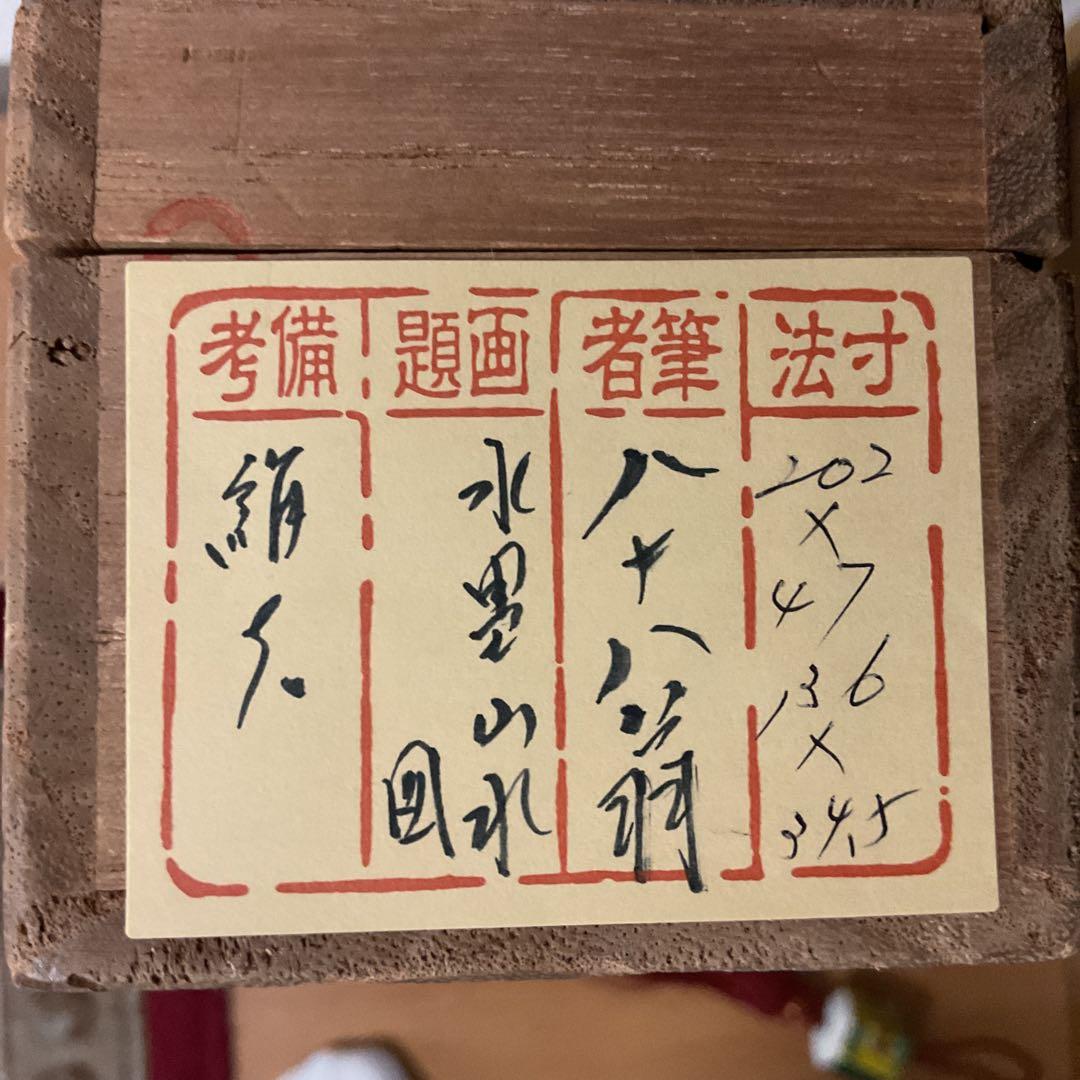 寸法
202
×
47
136
×
34.5
筆者
八十八翁
画題
水墨山水
図
備考
絹本